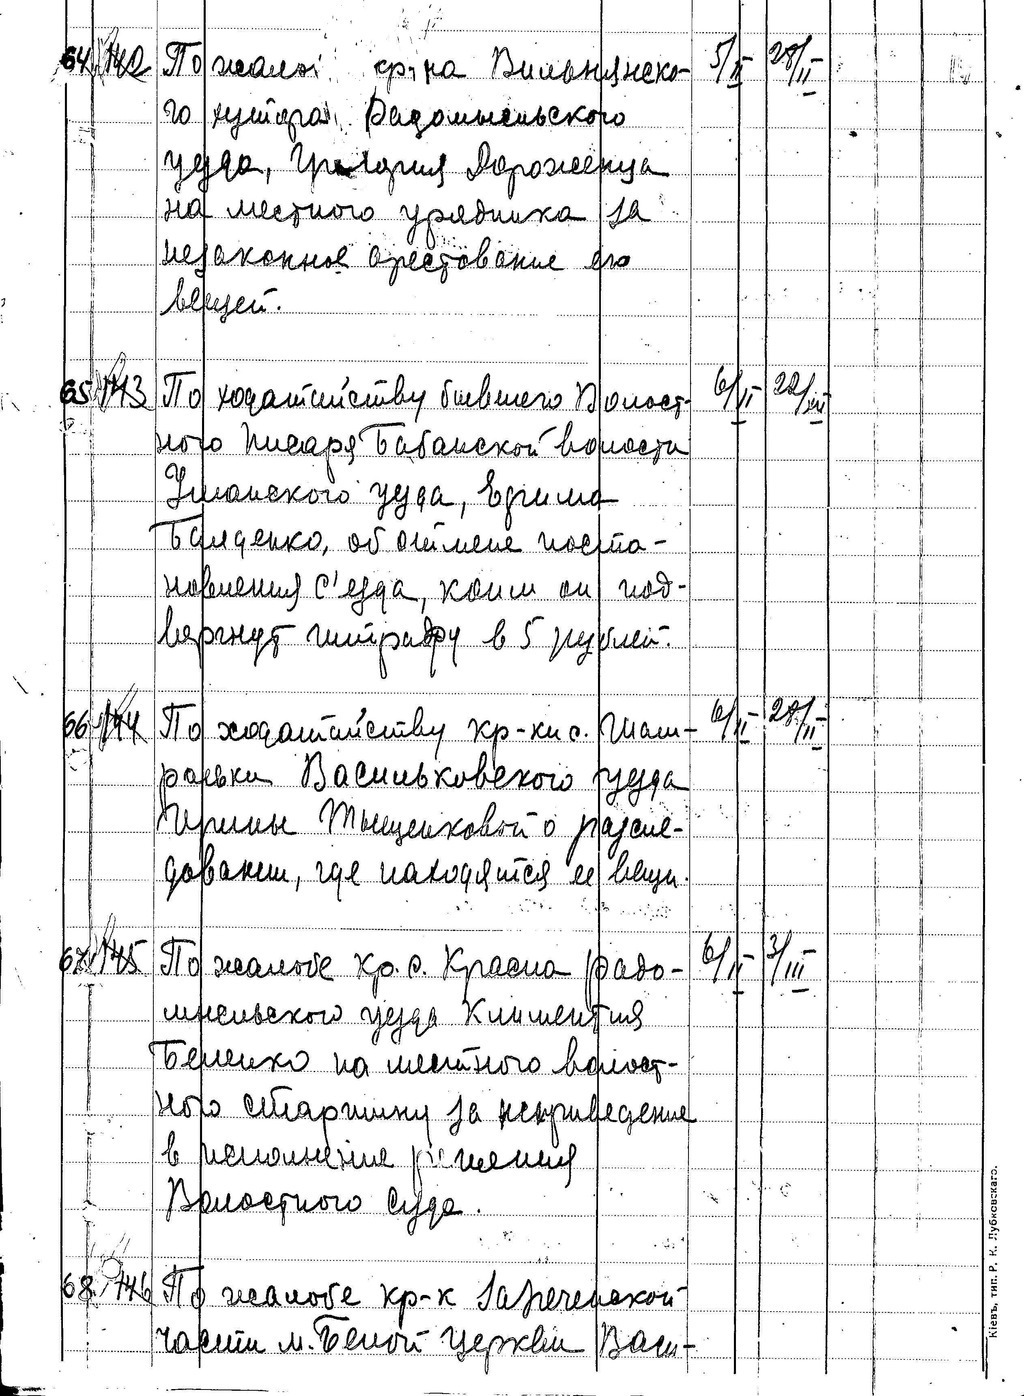 64 142 По жалоб кр-на Вильнянско- 5/II 28/II
го хутора Радомысльского
уезда, Григория Дороженца
на местного урядника за
незаконное арестование его
вещей.
65 143 По ходатайству бывшего Волост- 6/II 22/XII
ного Писаря Бабанской волости
Уманского уезда, Ефима
Балденко, об отмене поста-
новления с'езда, коим он под-
вергнут штрафу в 5 рублей.
66 144 По ходатайству кр-ки с. Шам- 6/II 28/II
раевки Васильковского уезда
Ирины Тыщенковой о рассле-
довании, где находятся ее вещи.
67 145 По жалобе кр. с. Красна Радо- 6/II 3/III
мысльского уезда Климентия
Беленко на местного волост-
ного старшину за неприведение
в исполнение решения
Волостного Суда.
68 146 По жалобе кр-к Зареченской
части м. Белой Церкви Вась-
Кіевъ, тип. Р. К. Лубковскаго.